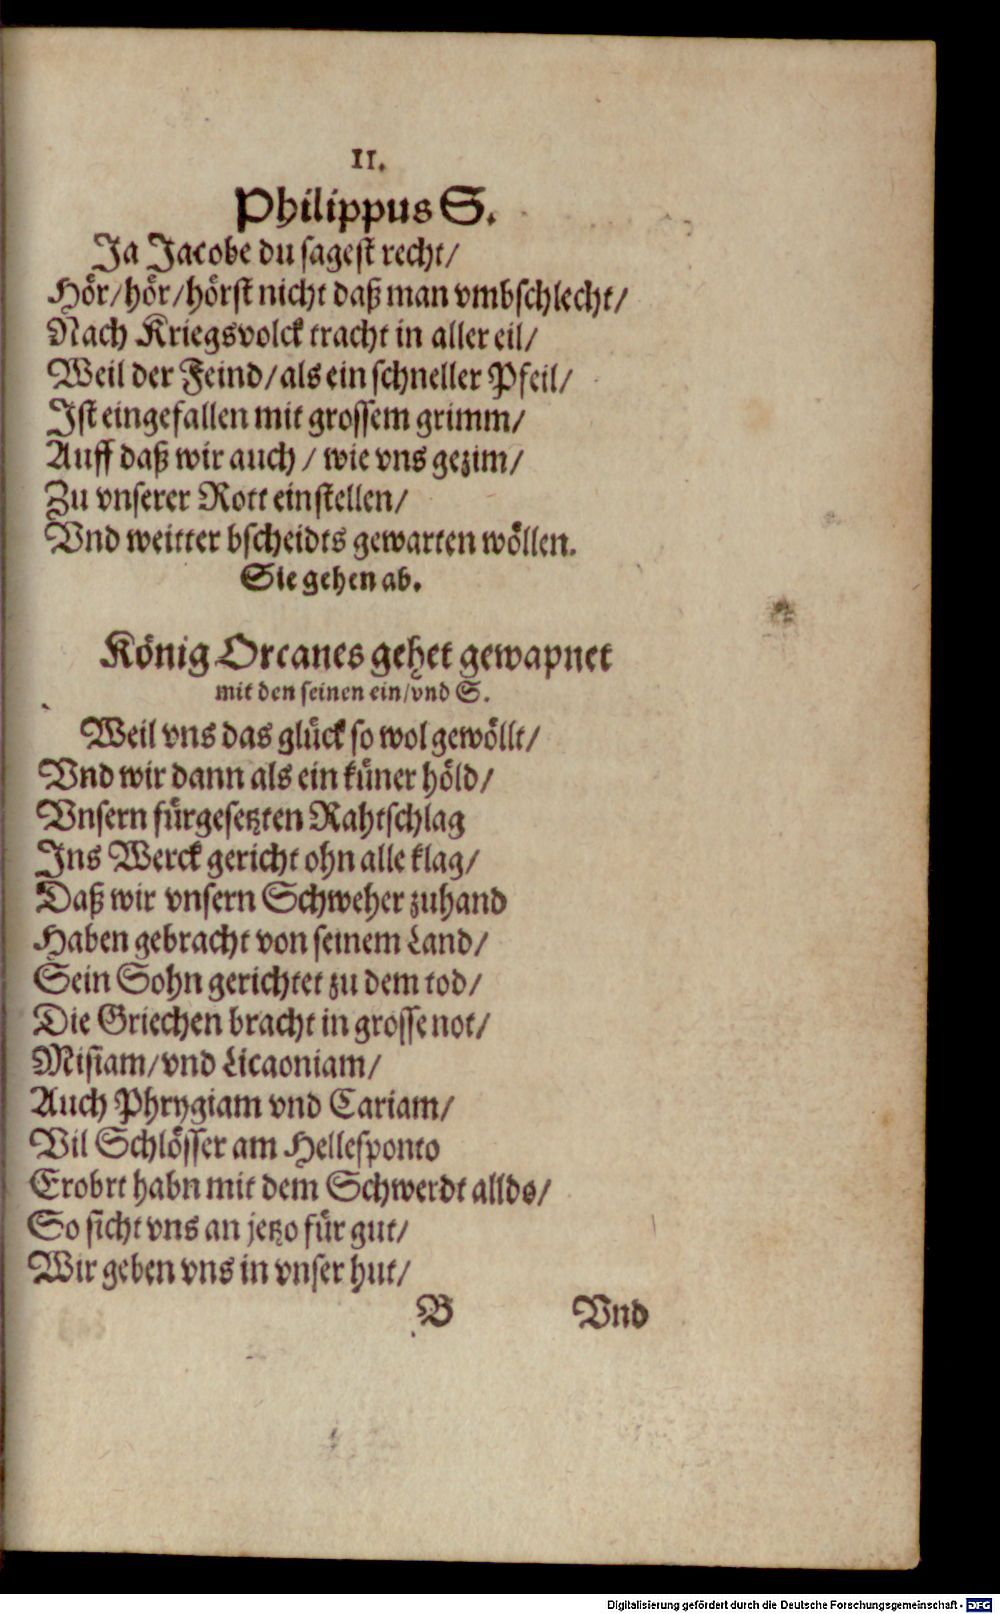 II.
Philippus S.
Ja Jacobe du sagest recht/
Hör/hör/hörst nicht daß man vmbschlecht/
Nach Kriegsvolck tracht in aller eil/
Weil der Feind/als ein schneller Pfeil/
Ist eingefallen mit grossem grimm/
Auff daß wir auch/ wie vns gezim/
Zu vnserer Rott einstellen/
Vnd weitter bscheidts gewarten wöllen.
Sie gehen ab.
König Orcanes gehet gewapnet
mit den seinen ein/vnd S.
Weil vns das glück so wol gewöllt/
Vnd wir dann als ein küner höld/
Vnsern fürgesetzten Rahtschlag
Ins Werck gericht ohn alle klag/
Daß wir vnsern Schweher zuhand
Haben gebracht von seinem Land/
Sein Sohn gerichtet zu dem tod/
Die Griechen bracht in grosse not/
Misiam/vnd Licaoniam/
Auch Phrygiam vnd Cariam/
Vil Schlösser am Hellesponto
Erobrt habn mit dem Schwerdt alldo/
So sicht vns an jetzo für gut/
Wir geben vns in vnser hut/
B Vnd
Digitalisierung gefördert durch die Deutsche Forschungsgemeinschaft - DFG